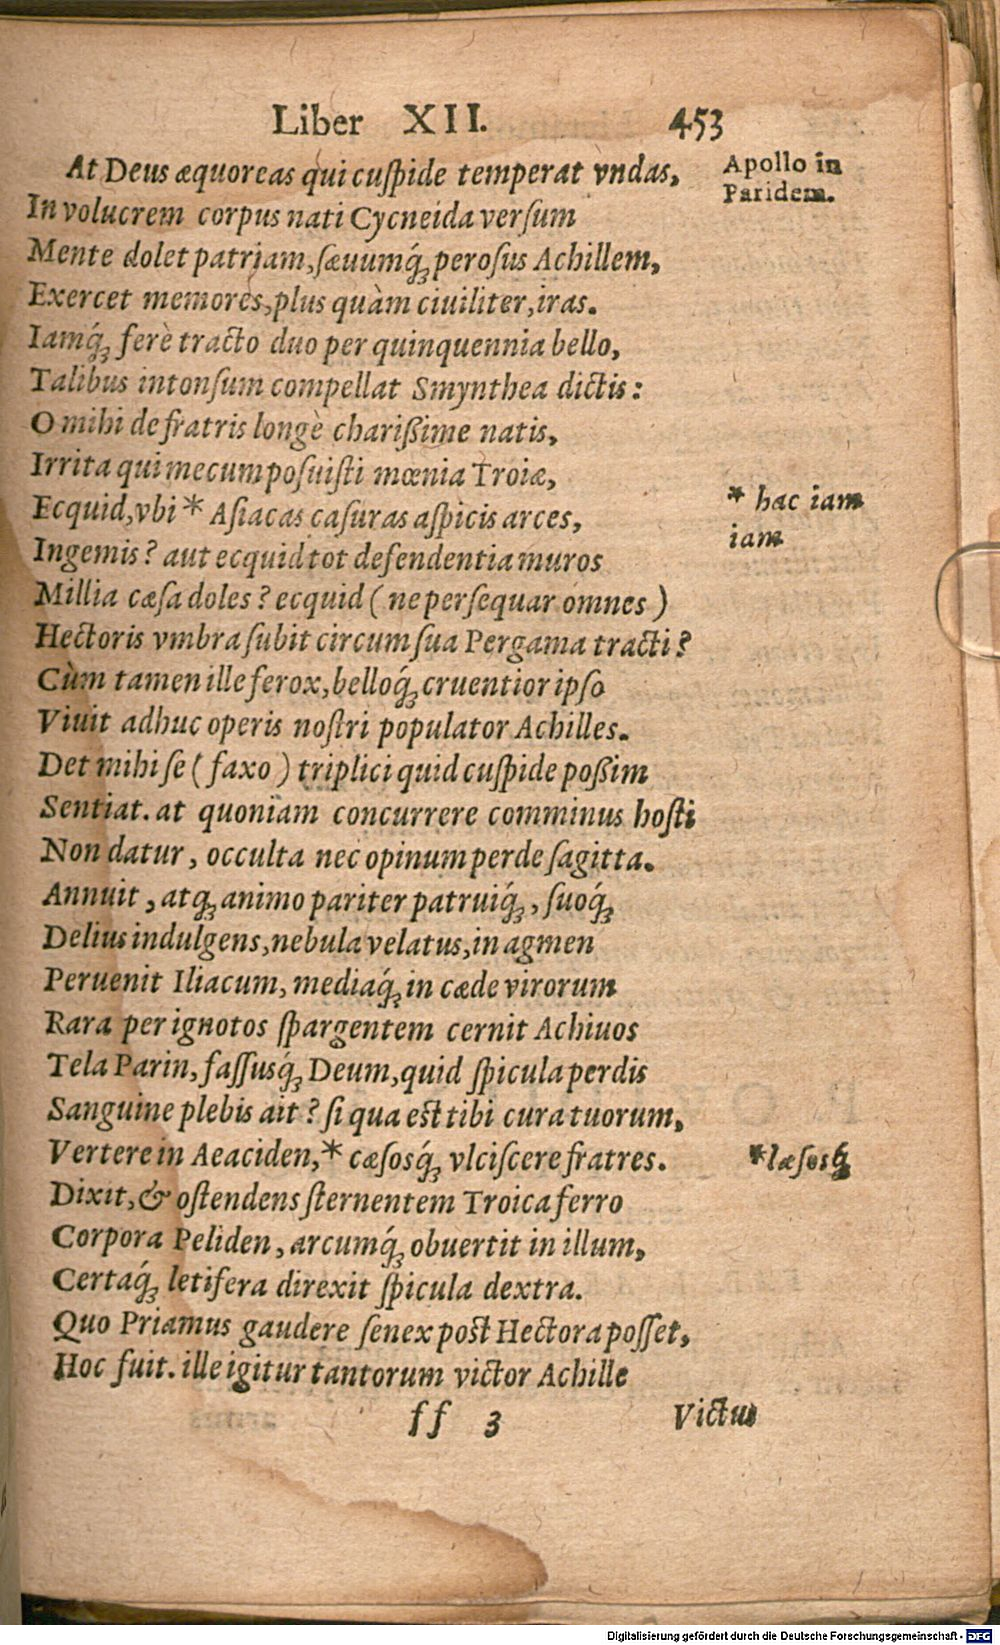 Liber XII. 453
At Deus æquoreas qui cuſpide temperat vndas,
Apollo in
Paridem.
In volucrem corpus nati Cycneida verſum
Mente dolet patriam, ſæuumq́; peroſus Achillem,
Exercet memores, plus quàm ciuiliter, iras.
Iamq́; ferè tracto duo per quinquennia bello,
Talibus intonſum compellat Smynthea dictis:
O mihi de fratris longè charißime natis,
Irrita qui mecum poſuiſti mœnia Troiæ,
Ecquid, vbi * Aſiacas caſuras aſpicis arces,
* hac iam
iam
Ingemis? aut ecquid tot defendentia muros
Millia cæſa doles? ecquid (ne perſequar omnes)
Hectoris vmbra ſubit circum ſua Pergama tracti?
Cùm tamen ille ferox, belloq́; cruentior ipſo
Viuit adhuc operis noſtri populator Achilles.
Det mihi ſe (faxo) triplici quid cuſpide poßim
Sentiat. at quoniam concurrere comminus hoſti
Non datur, occulta nec opinum perde ſagitta.
Annuit, atq; animo pariter patruiq́;, ſuoq́;
Delius indulgens, nebula velatus, in agmen
Peruenit Iliacum, mediaq́; in cæde virorum
Rara per ignotos ſpargentem cernit Achiuos
Tela Parin, faſſusq́; Deum, quid ſpicula perdis
Sanguine plebis ait? ſi qua eſt tibi cura tuorum,
Vertere in Aeaciden, * cæſosq́; vlciſcere fratres.
* læſosq́;
Dixit, & oſtendens ſternentem Troica ferro
Corpora Peliden, arcumq́; obuertit in illum,
Certaq́; letifera direxit ſpicula dextra.
Quo Priamus gaudere ſenex poſt Hectora poſſet,
Hoc fuit. ille igitur tantorum victor Achille
ff 3 Victus
Digitalisierung gefördert durch die Deutsche Forschungsgemeinschaft - DFG